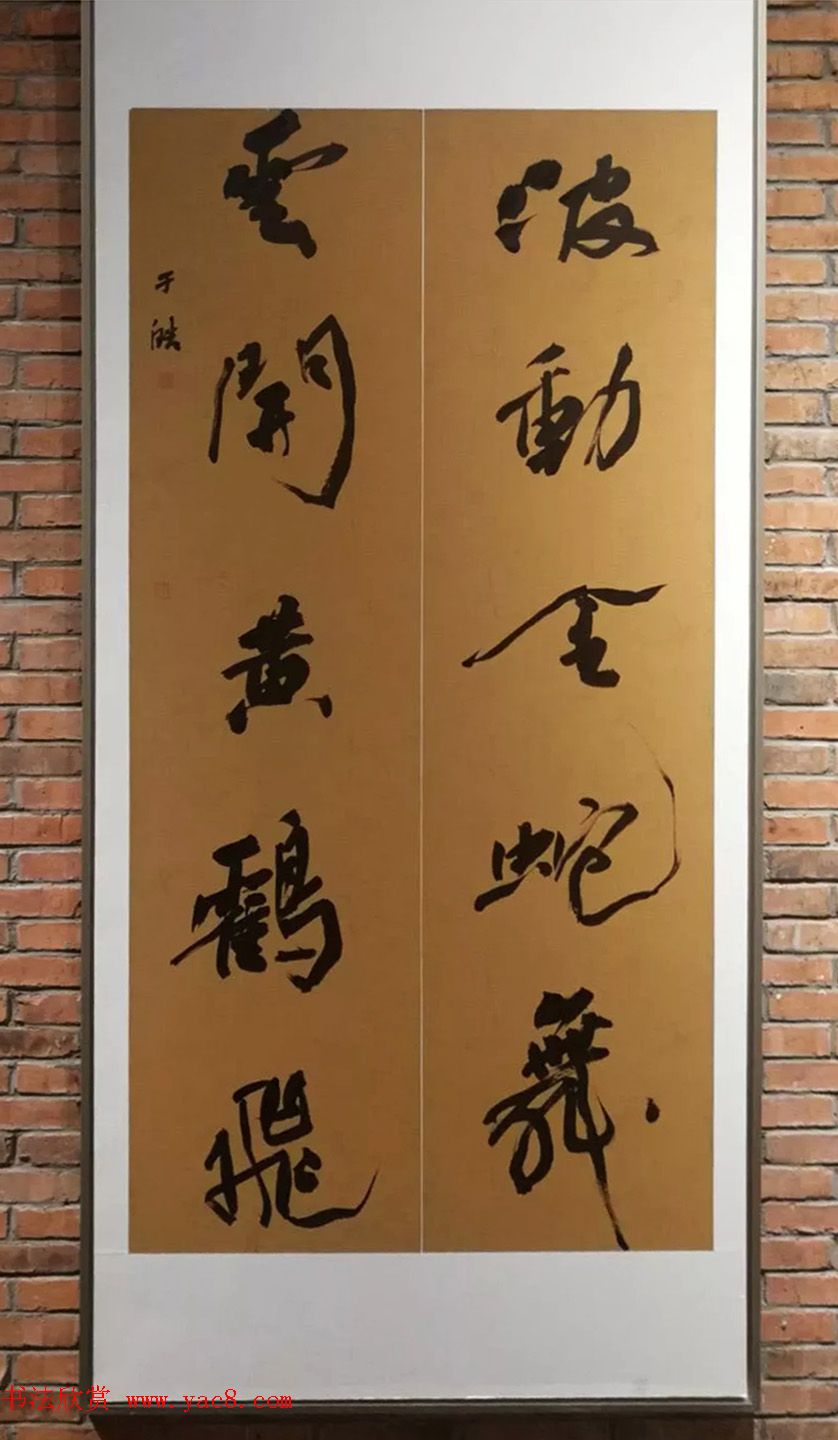 波動金蛇舞
雲開黄鶴飛
于皓
书法欣赏 www.yac8.com